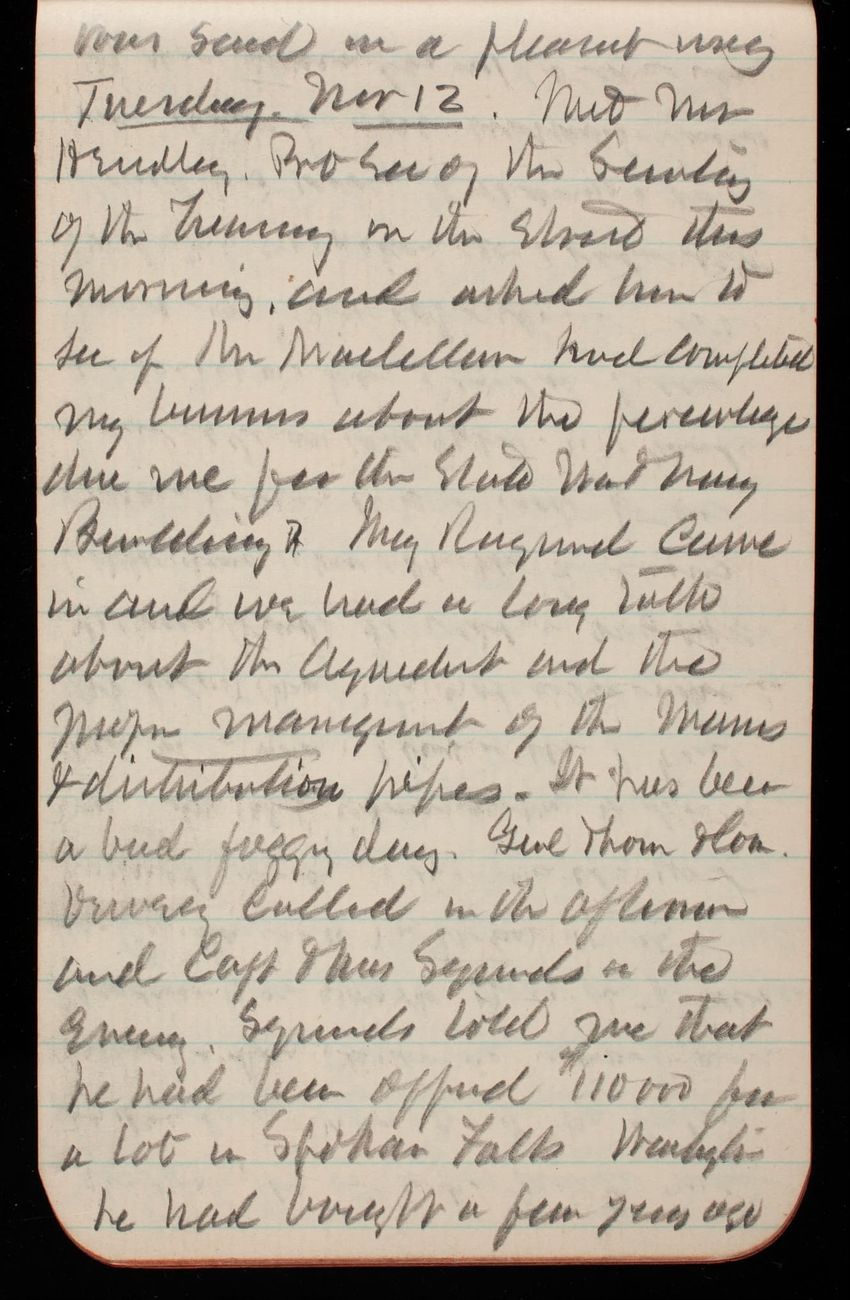 was said in a pleasant way
Tuesday. Nov 12. Met Mr
Hendley. Pro Sec of the Secretary
of the Treasury on the Street this
morning, and asked him to
see if Mr Maclellan had completed
my business about the percentage
due me for the State War & Navy
Building. My Raymond came
in and we had a long talk
about the Aqueduct and the
proper management of the Mains
& distribution pipes. It has been
a bad foggy day. Genl Thom &
called in the afternoon
and Capt & Mrs Symonds in the
Evening. Symonds told me that
he had been offered $110000 for
a lot in Spokan Falls Washington
he had bought a few years ago